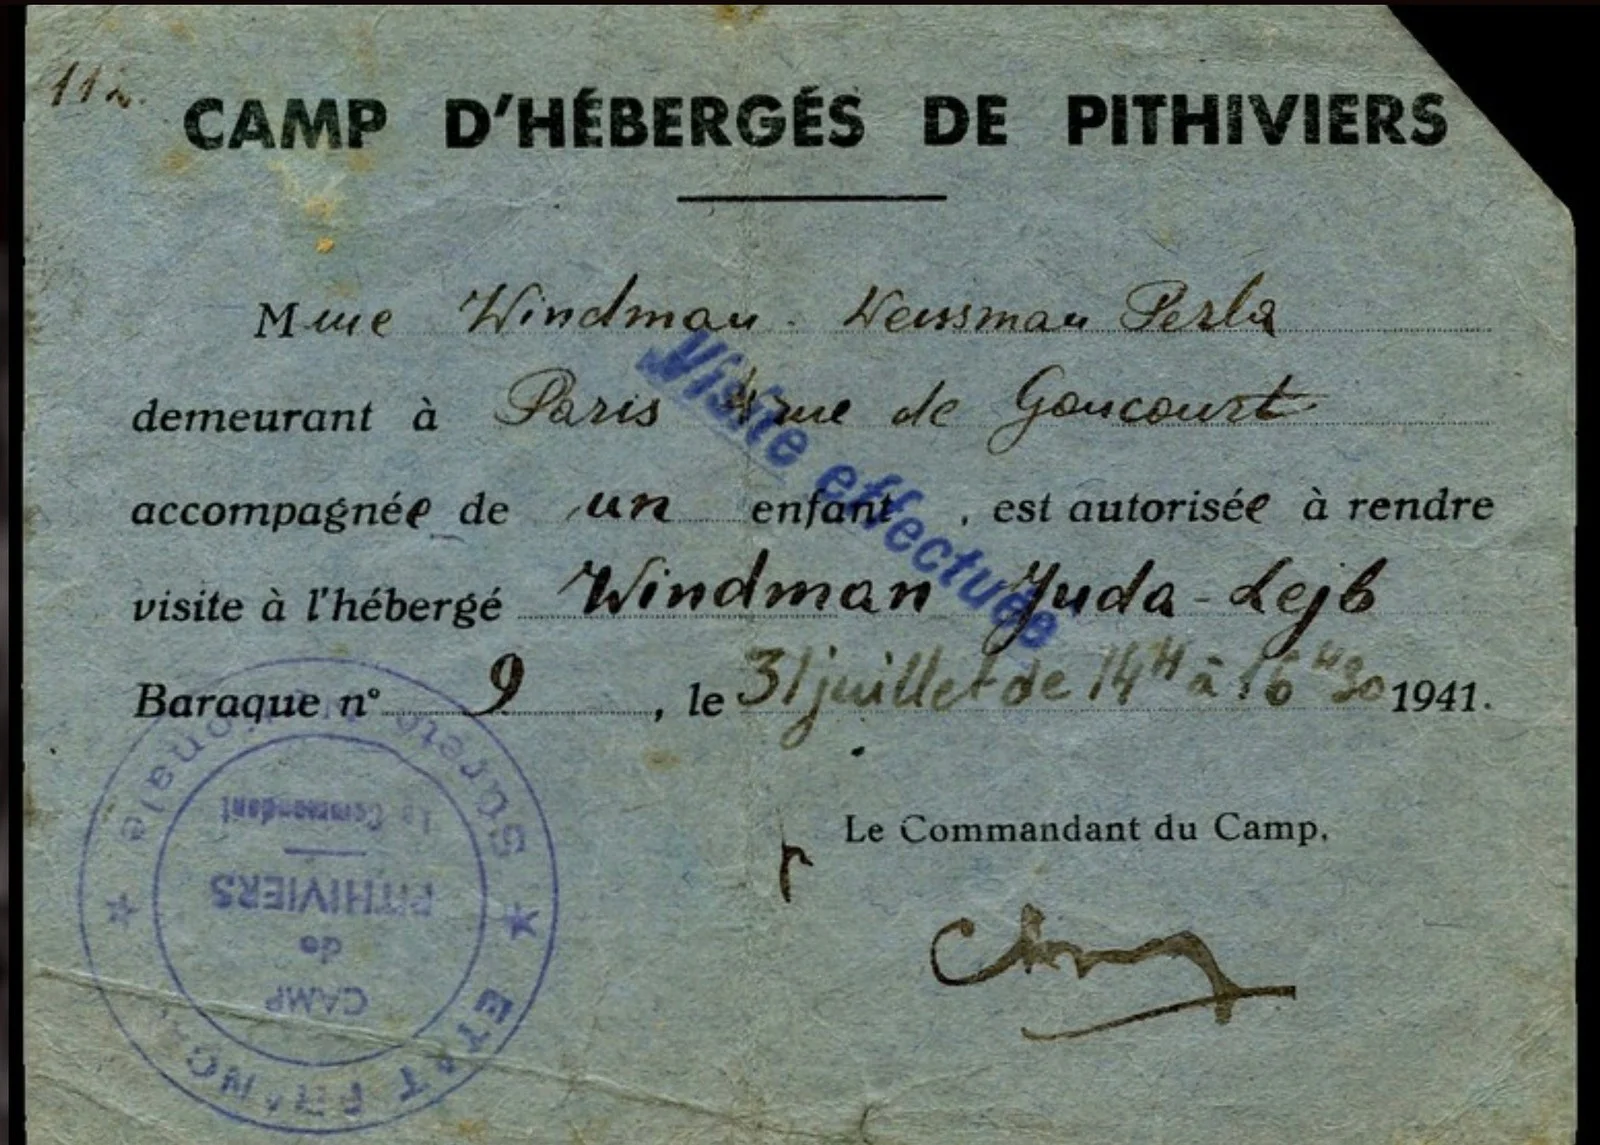 112.
CAMP D'HÉBERGÉS DE PITHIVIERS
Mme Windman. Weissman Perla
demeurant à Paris 4 rue de Goncourt
accompagnée de un enfant, est autorisée à rendre
visite à l'hébergé Windman Juda-Lejb
Baraque n° 9, le 31 juillet de 14H à 16H30 1941.
Visite effectuée
Le Commandant du Camp,
ETAT FRANC
Sûreté Nationale
CAMP
de
PITHIVIERS
Le Commandant